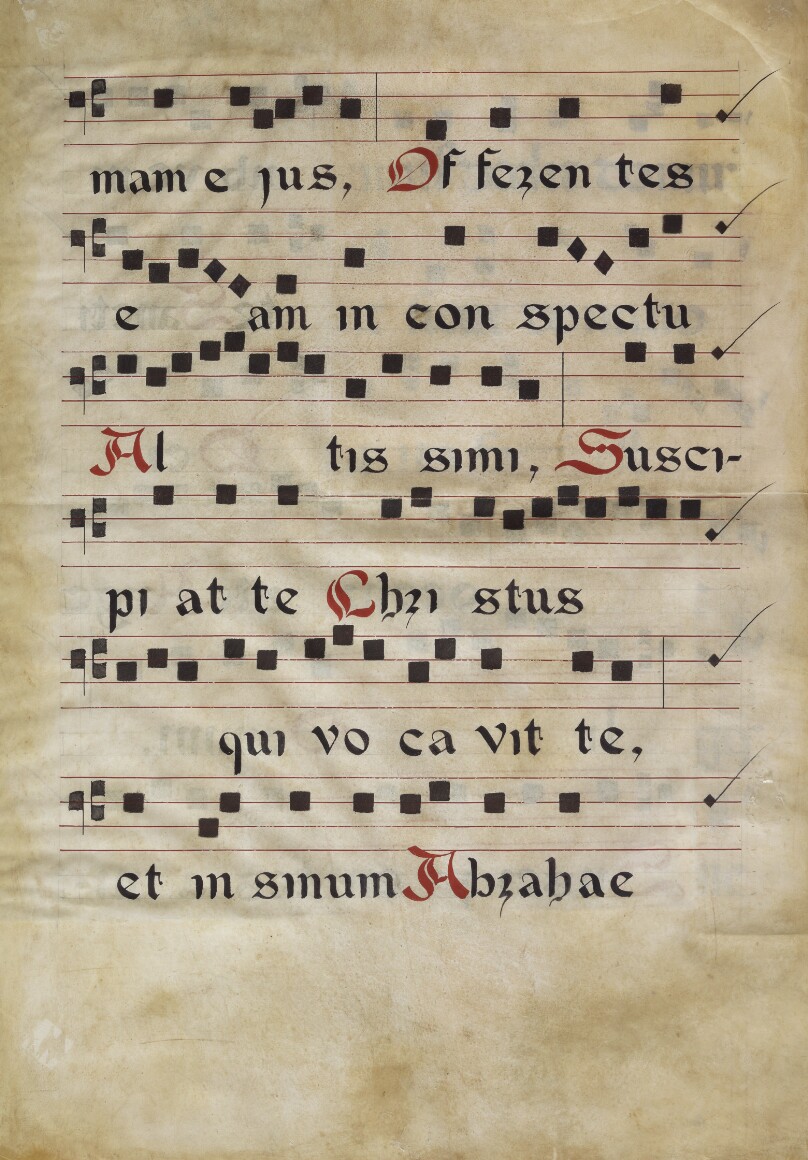 mam e jus, Of feren tes
e am in con spectu
Al tis simi, Susci-
pi at te Chri stus
qui vo ca vit te,
et in sinum Abrahae